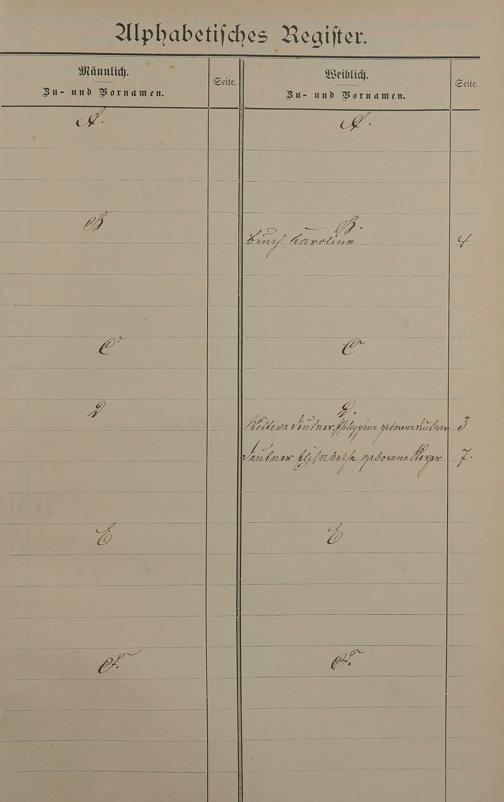 Alphabetisches Register.
Männlich.
Zu- und Vornamen.
Seite.
Weiblich.
Zu- und Vornamen.
Seite.
A.
A.
B
B.
Bruch Karoline 4
C
C
D
D.
Philippine geborene 3
Elisabetha geborene 7.
E
E
F.
F.